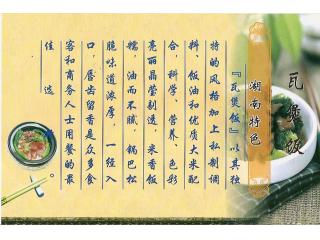 瓦煲饭
湖南特色
『瓦煲饭』以其独
特的风格加上私制调
料、饭油和优质大米配
合，科学、营养、色彩
亮丽晶莹制造，米香饭
糯，油而不腻，锅巴松
脆味道浓厚，一经入
口，唇齿留香是众多食
客和商务人士用餐的最
佳选择。